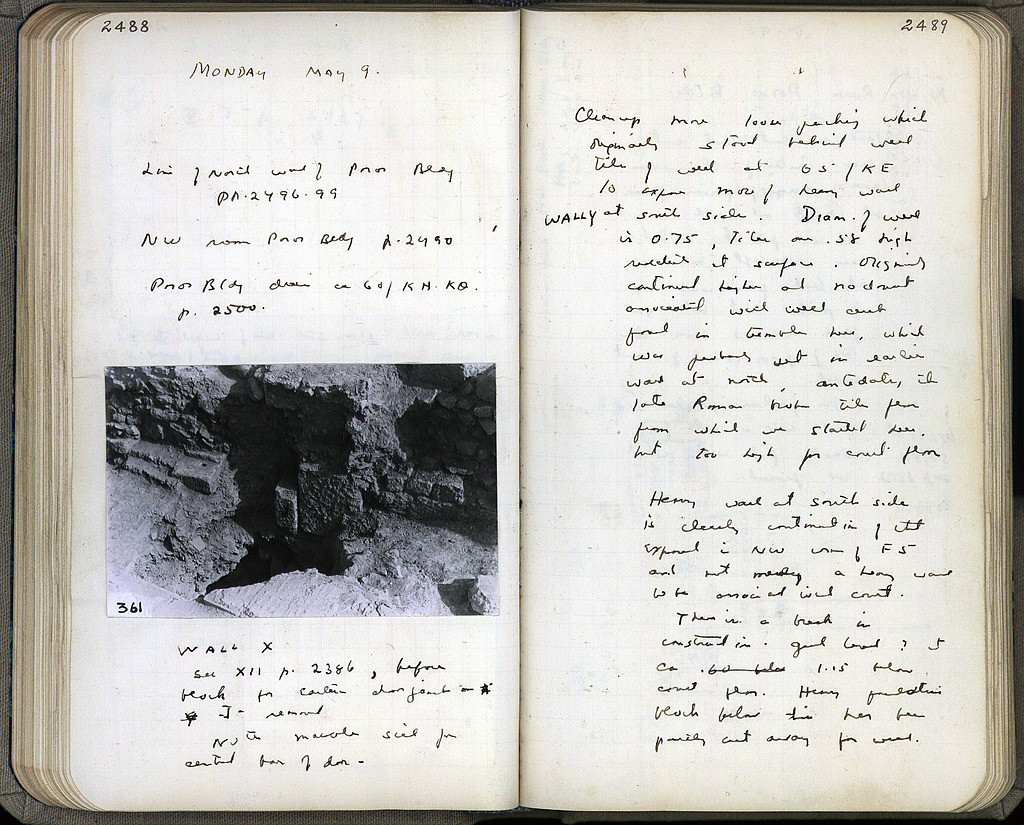 2488
MONDAY MAY 9.
Line of North wall of Poros Bldg
pp. 2496-99
NW room Poros Bldg p. 2490
Poros Bldg drain ca 60/KH-KΘ.
p. 2500.
361
WALL X
See XII p. 2386, before
block for earlier door jamb
removed
Note marble sill for
central bar of door -
2489
Clean up more loose packing which
originally stood behind west
tile of well at 65/KE
to expose more of heavy wall
WALL Y at south side. Diam. of well
is 0.75, Tiles are .58 high
at surface. Originally
continued higher and no doubt
associated with well curb
found in tumble here, which
was probably set in earlier
wall at north, antedating the
late Roman broken tile floor
from which we started here,
but too high for court floor
Heavy wall at south side
is clearly continuation of that
exposed in NW room of F5
and not merely a heavy wall
to be associated with court.
There is a break in
construction - ground level? 5
ca. 1.15 below
court floor. Heavy foundation
block below this has been
partly cut away for well.